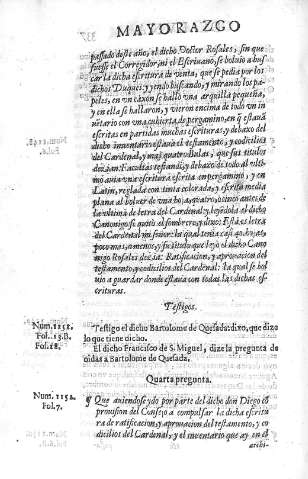 MAYORAZGO
passado deste año, el dicho Doctor Rosales, sin que
fuesse el Corregidor, ni el Escriuano, se boluio a buscar
la dicha escritura de venta, que se pedia por los
dichos Duques, y yendo buscando, y mirando los papeles,
en vn caxon se hallò vna arquilla pequeña,
y en ella se hallaron, y vieron encima de todo vn inuentario
con vna cubierta de pergamino, en que estauã
escritas en partidas muchas escrituras, y debaxo del
dicho inuentario estaua el testamento, y codicilios
del Cardenal, y mas quatro Bulas, que sus titulos
dezian Facultas testandi, y debaxo de todo al vltimo
auia vna escritura escrita en pergamino, y en
Latin, reglada con tinta colorada, y escrita media
plana al boluer de vna hoja, quatro, ò cinco antes de
la vltima de letra del Cardenal, y leyendola el dicho
Canonigo se
del Cardenal mi señor: la qual tenia
poco mas, ò menos, y su titulo que leyò el dicho Canonigo
Rosales dezia: Ratificacion, y aprouacion del
testamento, y codicilios del Cardenal: la qual se boluio
a guardar donde estaua con todas las dichas escrituras.
Testigos.
Num. 1151.
Fol. 15.B.
Fol. 18.
Testigo el dicho Bartolome de Quesada: dixo, que dize
lo que tiene dicho.
El dicho Francisco de S. Miguel, dize la pregunta de
oidas a Bartolome de Quesada.
Quarta pregunta.
Num. 1152.
Fol. 7.
Que auiendose ydo por parte del dicho don Diego cõ
prouision del Consejo a compulsar la dicha escritura
de ratificacion, y aprouacion del testamento, y codicilios
del Cardenal, y el inuentario que ay en el
archi-